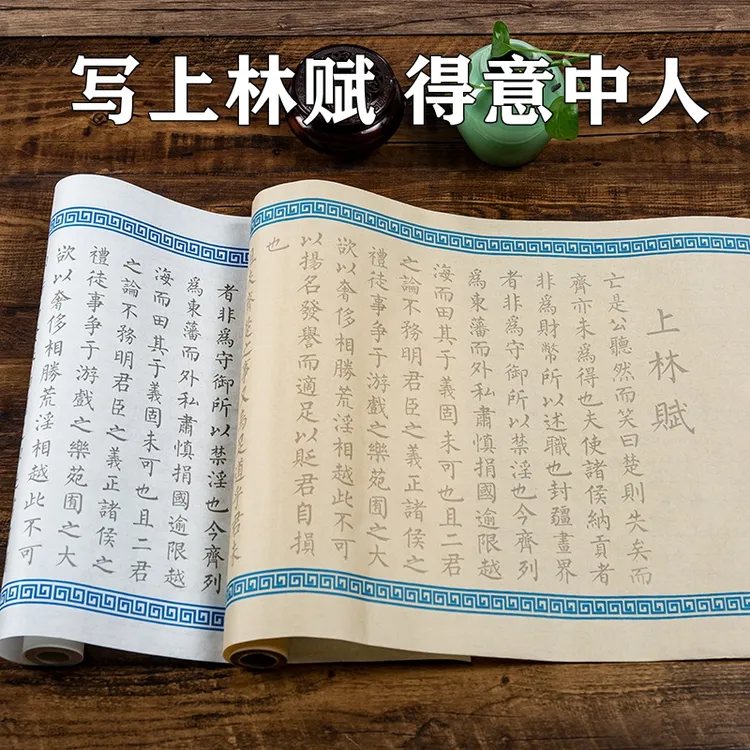 写上林赋 得意中人
上林賦
亡是公聽然而笑曰楚則失矣而
齊亦未爲得也夫使諸侯納貢者
非爲財幣所以述職也封疆畫界
者非爲守御所以禁淫也今齊列
爲東藩而外私肅慎捐國逾限越
海而田其于義固未可也且二君
之論不務明君臣之義正諸侯之
禮徒事争于游戲之樂苑囿之大
欲以奢侈相勝荒淫相越此不可
以揚名發譽而適足以貶君自損
也
者非爲守御所以禁淫也今齊列
爲東藩而外私肅慎捐國逾限越
海而田其于義固未可也且二君
之論不務明君臣之義正諸侯之
禮徒事争于游戲之樂苑囿之大
欲以奢侈相勝荒淫相越此不可